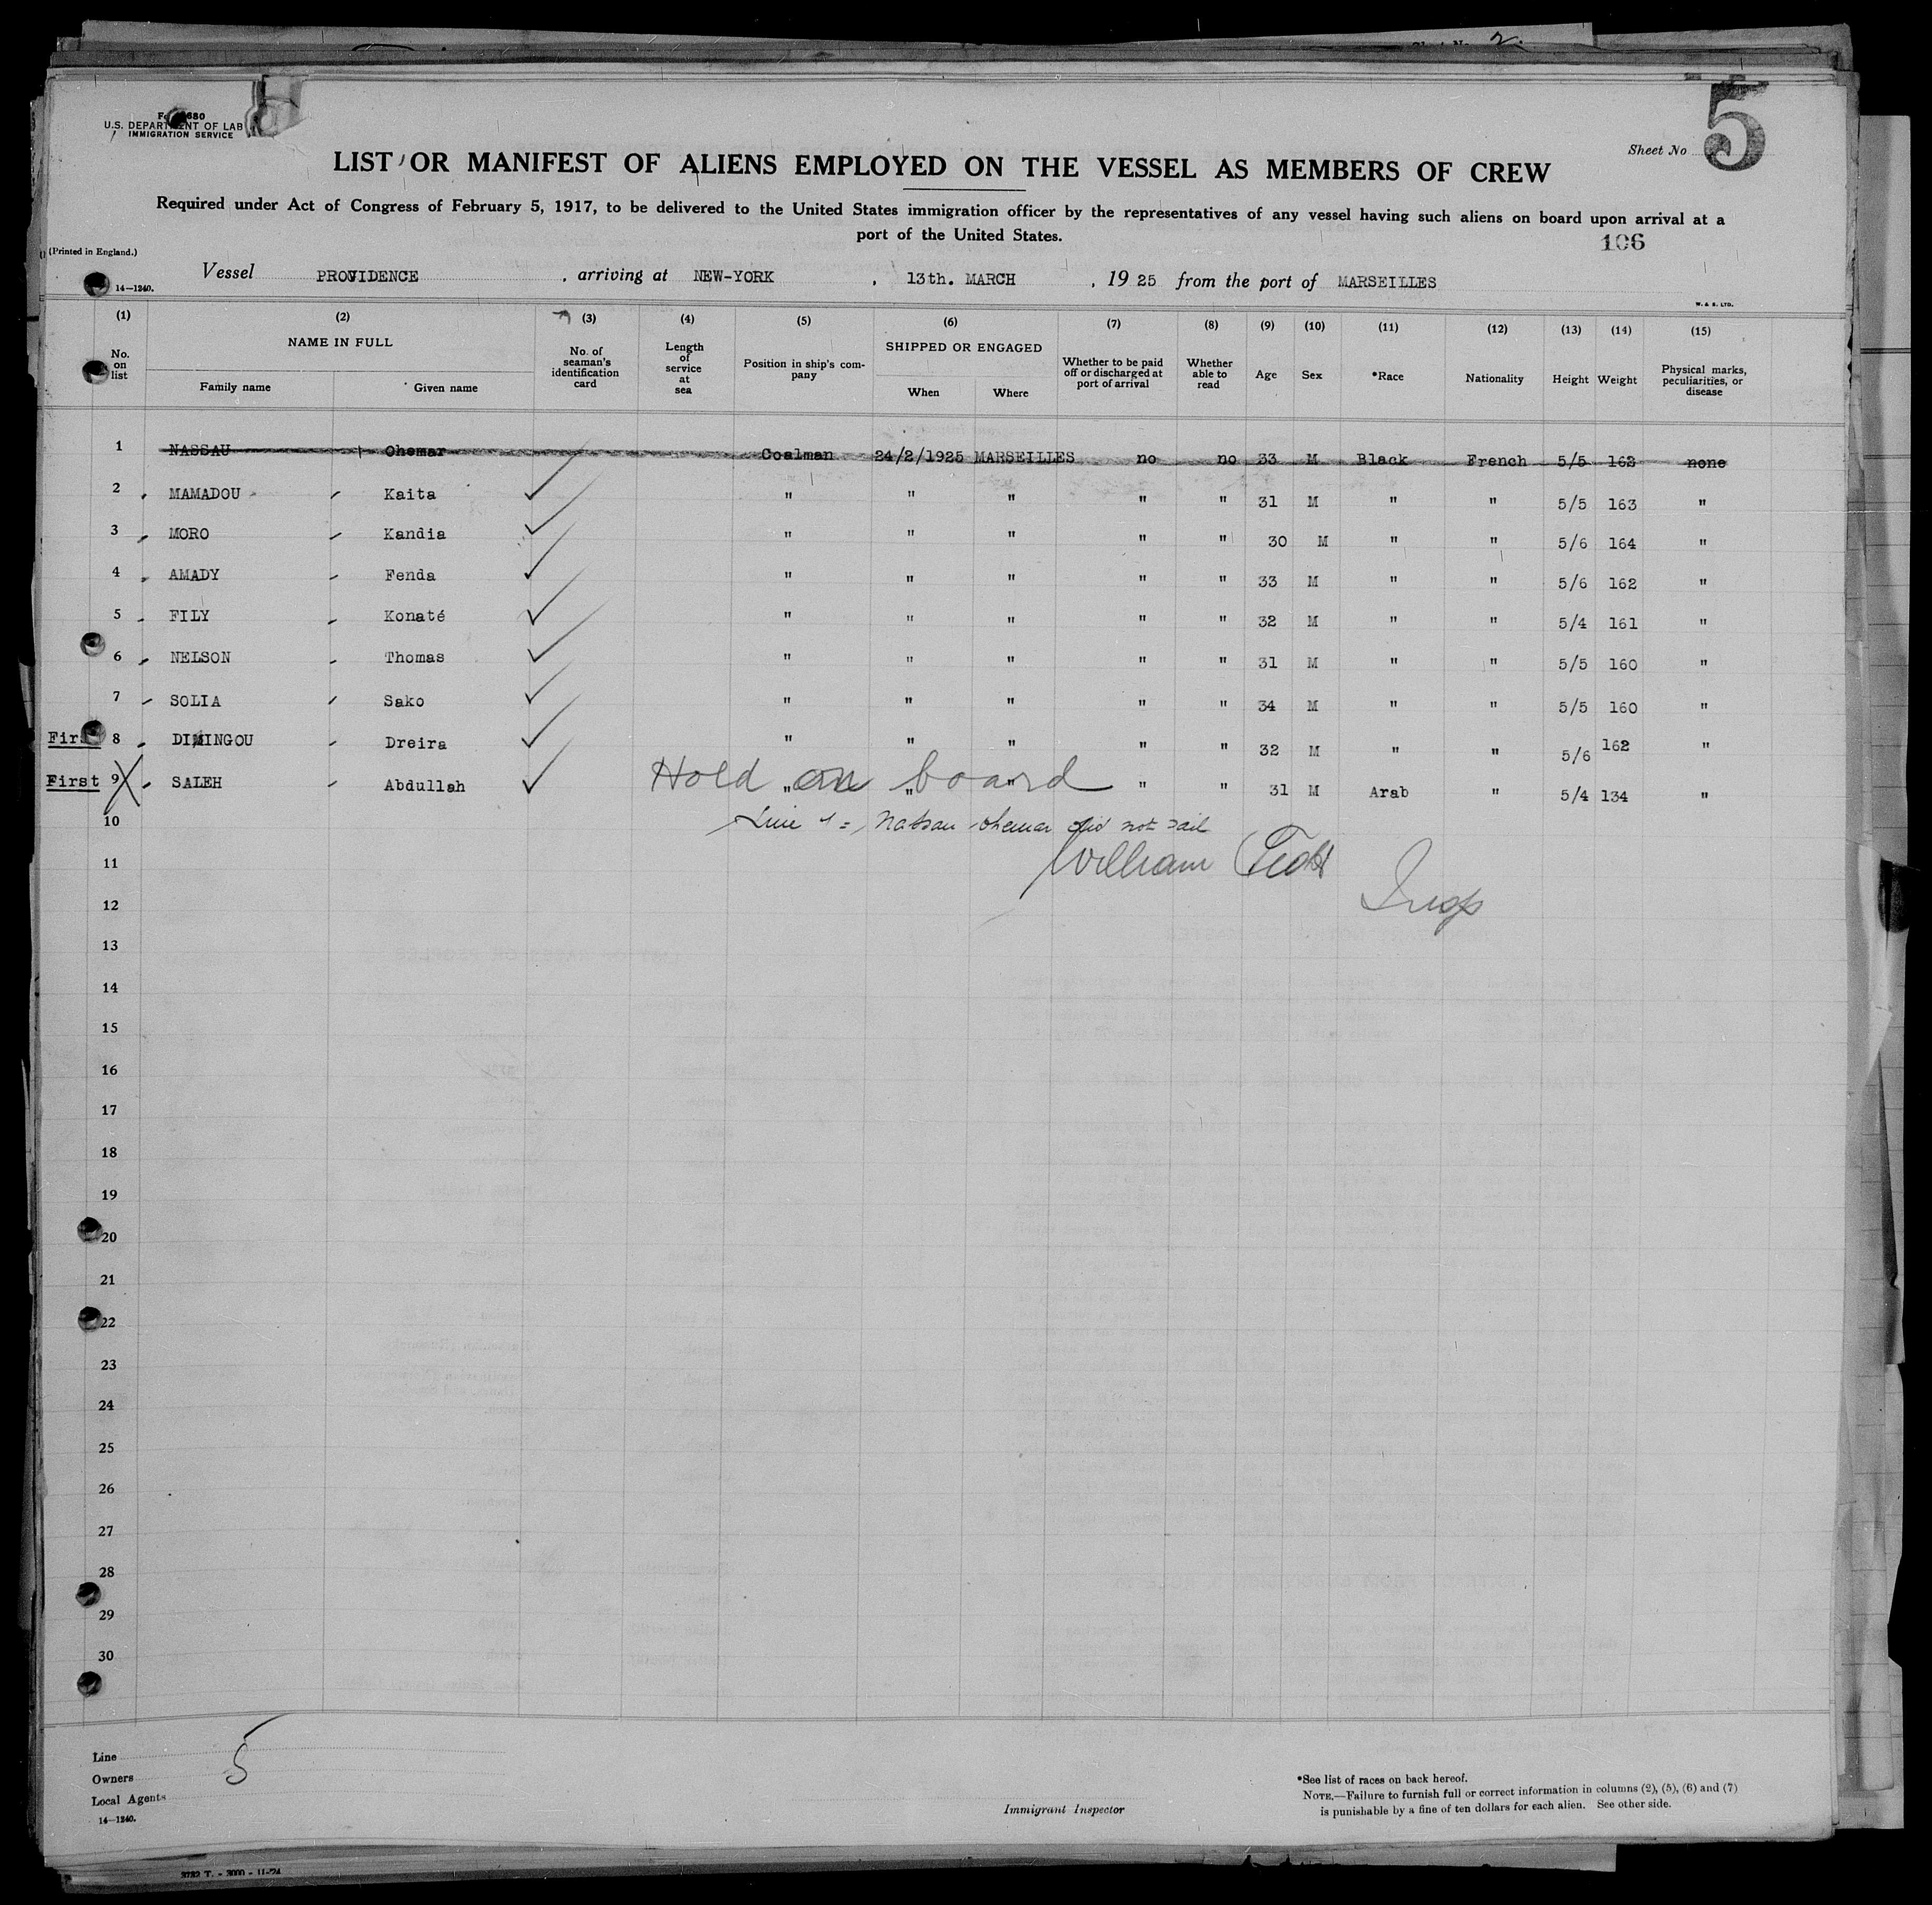 Sheet No 2.
5
U.S. DEPARTMENT OF LAB
IMMIGRATION SERVICE
Sheet No
LIST OR MANIFEST OF ALIENS EMPLOYED ON THE VESSEL AS MEMBERS OF CREW
Required under Act of Congress of February 5, 1917, to be delivered to the United States immigration officer by the representatives of any vessel having such aliens on board upon arrival at a
port of the United States.
106
(Printed in England.)
14—1240.
Vessel PROVIDENCE, arriving at NEW-YORK, 13th. MARCH, 1925 from the port of MARSEILLES
W. & S. LTD.
(1) (2) (3) (4) (5) (6) (7) (8) (9) (10) (11) (12) (13) (14) (15)
No. on list NAME IN FULL Family name Given name No. of seaman's identification card Length of service at sea Position in ship's company SHIPPED OR ENGAGED When Where Whether to be paid off or discharged at port of arrival Whether able to read Age Sex *Race Nationality Height Weight Physical marks, peculiarities, or disease
1 NASSAU Ohemar Coalman 24/2/1925 MARSEILLES no no 33 M Black French 5/5 162 none
2 MAMADOU Kaita " " " " " 31 M " " 5/5 163 "
3 MORO Kandia " " " " " 30 M " " 5/6 164 "
4 AMADY Fenda " " " " " 33 M " " 5/6 162 "
5 FILY Konaté " " " " " 32 M " " 5/4 161 "
6 NELSON Thomas " " " " " 31 M " " 5/5 160 "
7 SOLIA Sako " " " " " 34 M " " 5/5 160 "
First 8 Dreira " " " " " 32 M " " 5/6 162 "
First 9 SALEH Abdullah " " " " " 31 M Arab " 5/4 134 "
Hold on board
10
Line 1 = Nassau Ohemar did not sail
11
William
12
Insp
13
14
15
16
17
18
19
20
21
22
23
24
25
26
27
28
29
30
Line
Owners
Local Agents
14—1240.
5
Immigrant Inspector
*See list of races on back hereof.
NOTE.—Failure to furnish full or correct information in columns (2), (5), (6) and (7)
is punishable by a fine of ten dollars for each alien. See other side.
3732 T. - 3000 - 11-'24